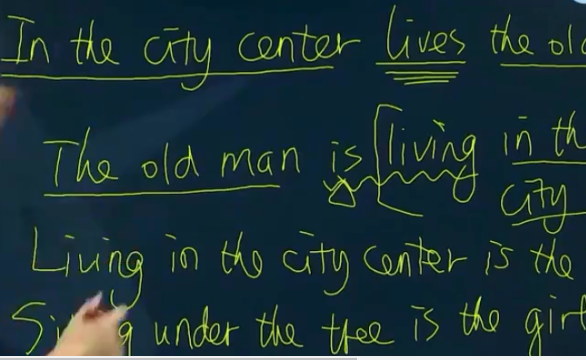 In the city center lives the old
The old man is [living in th
city
Living in the city center is the
under the tree is the girl